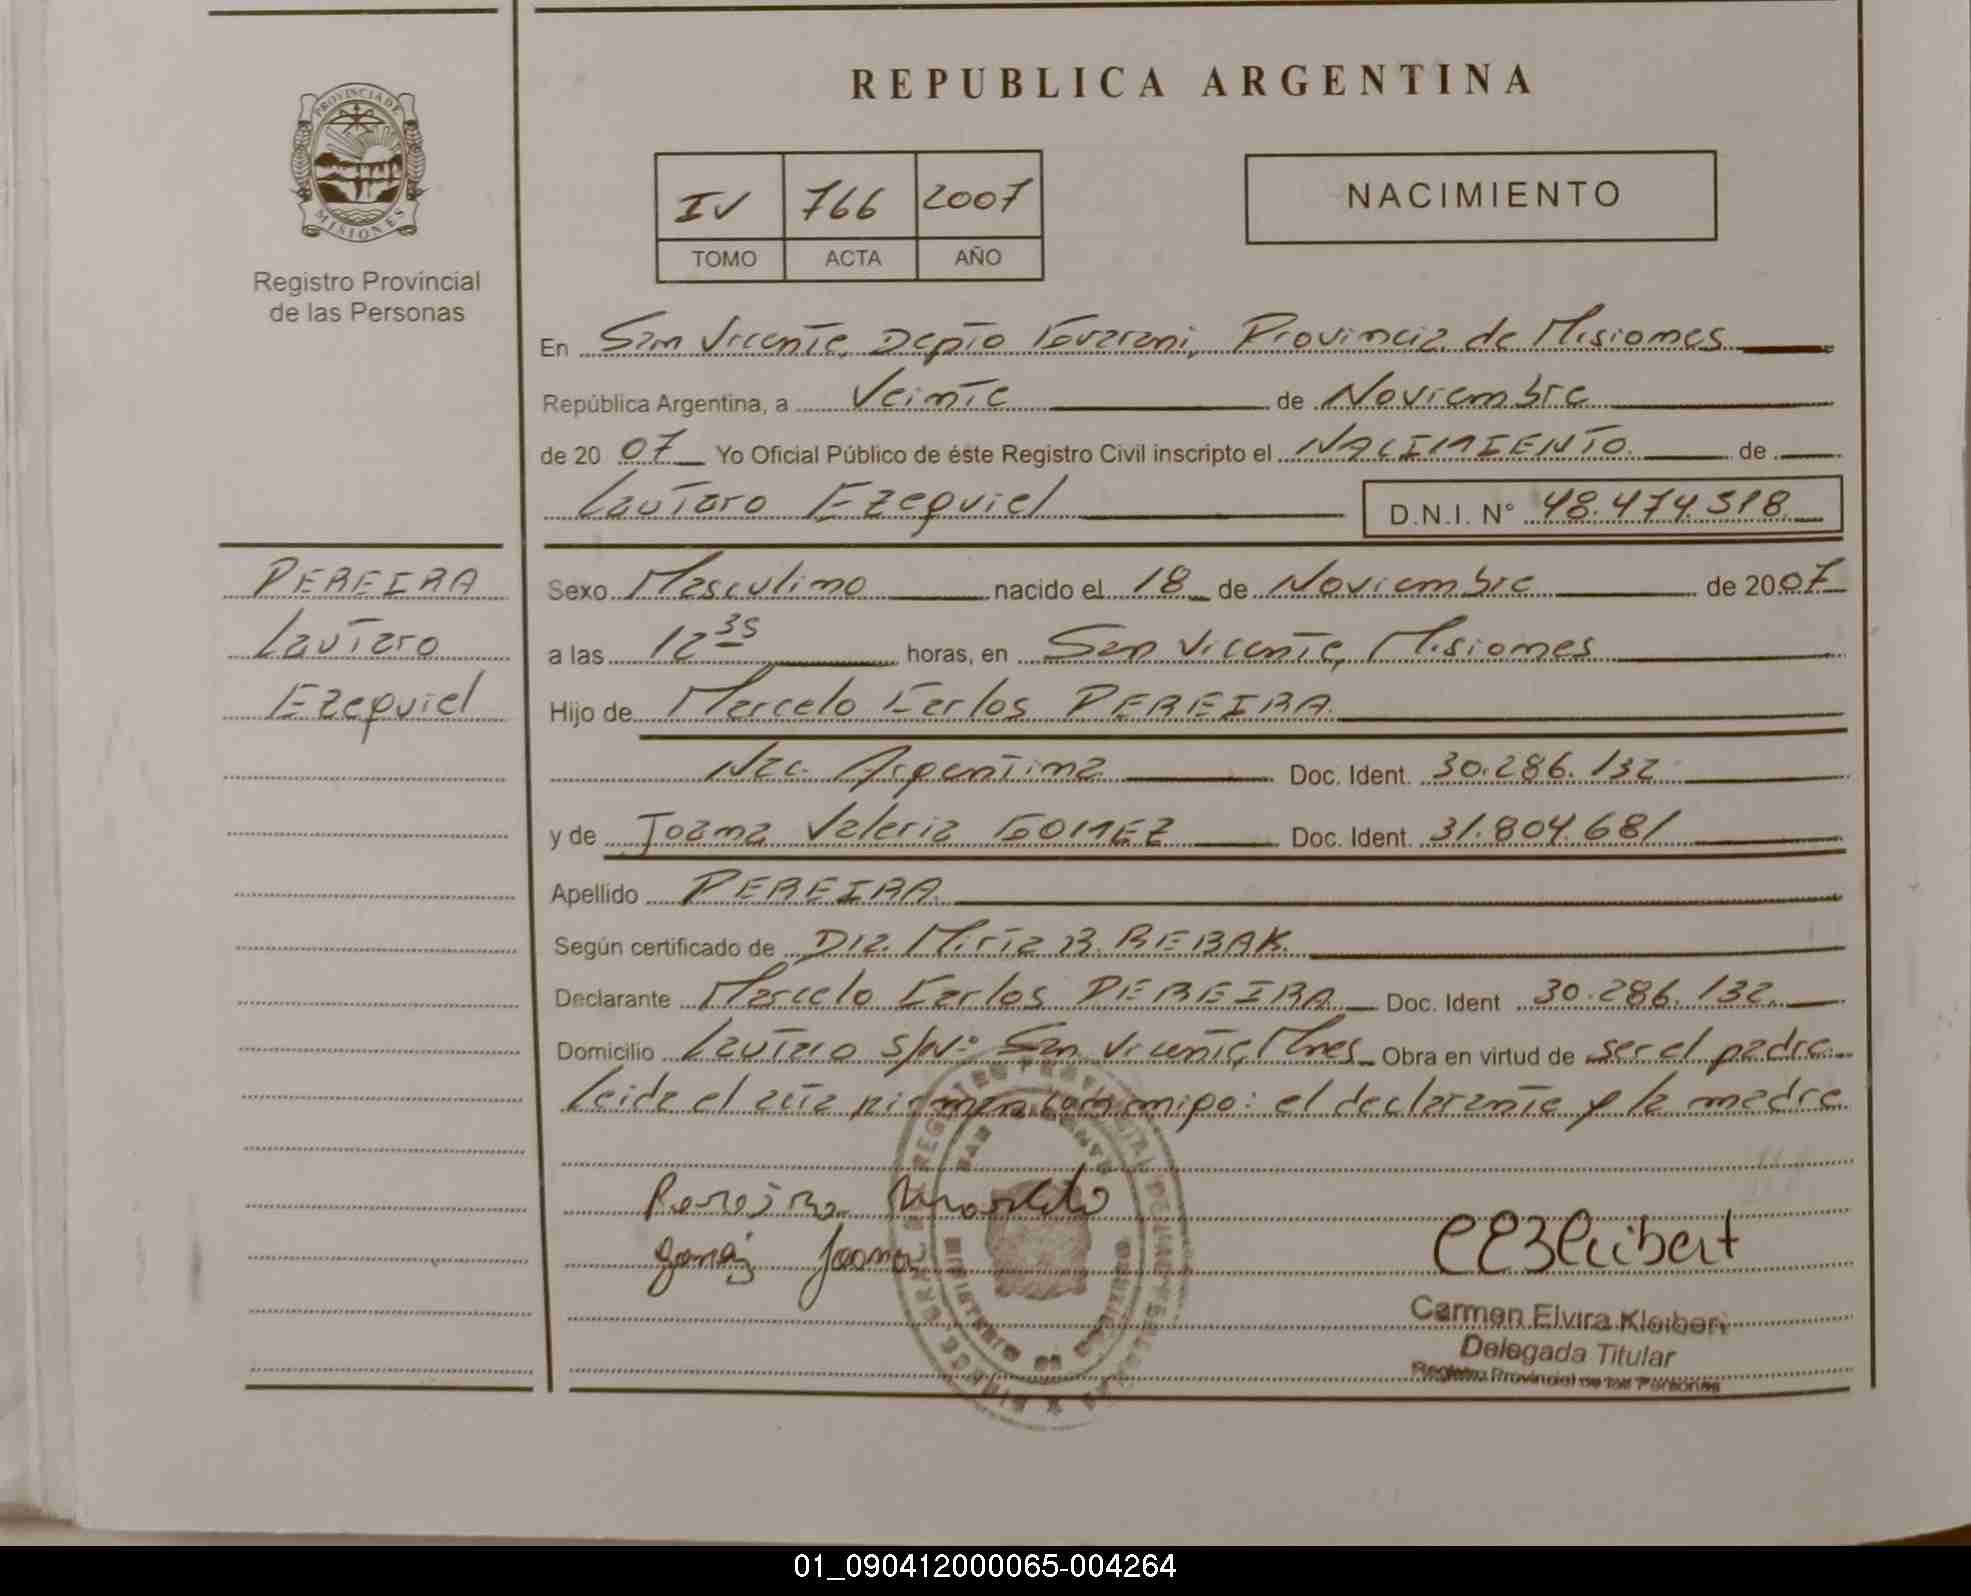 REPUBLICA ARGENTINA
PROVINCIA DE
MISIONES
Registro Provincial
de las Personas
IV 766 2007
TOMO ACTA AÑO
NACIMIENTO
En San Vicente, Depto Guarani, Provincia de Misiones
República Argentina, a Veinte de Noviembre
de 20 07 Yo Oficial Público de éste Registro Civil inscripto el NACIMIENTO de
Lautaro Ezequiel D.N.I. N° 48.474.318
PEREIRA
Lautaro
Ezequiel
Sexo Masculino nacido el 18 de Noviembre de 2007
a las 12 35 horas, en San Vicente, Misiones
Hijo de Marcelo Carlos PEREIRA
Nac. Argentina Doc. Ident. 30.286.132
y de Joana Valeria GOMEZ Doc. Ident. 31.804.681
Apellido PEREIRA
Según certificado de Dra. Mirta B. REBAK
Declarante Marcelo Carlos PEREIRA Doc. Ident 30.286.132
Domicilio Lautaro s/Nº San Vicente, Mnes Obra en virtud de ser el padre
Leida el acta firman conmigo: el declarante y la madre
Pereira Marcelo
Gomez Joana
CEKleibert
Carmen Elvira Kleibert
Delegada Titular
Registro Provincial de las Personas
01_090412000065-004264